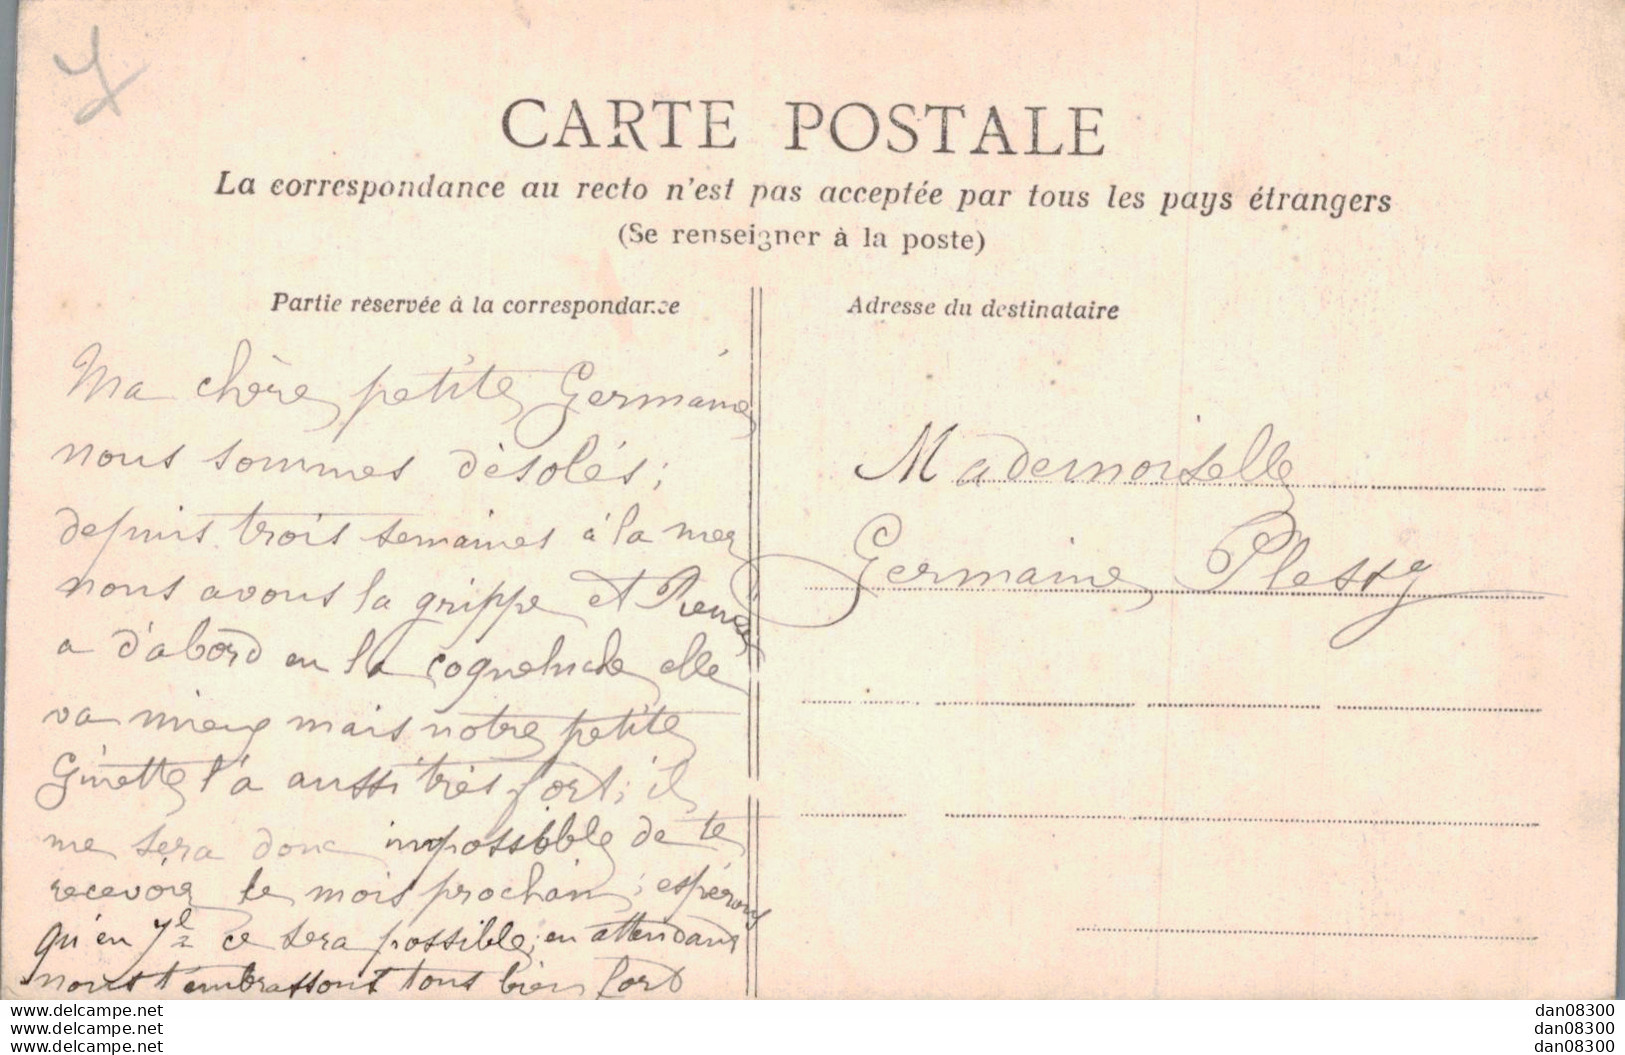 CARTE POSTALE
La correspondance au recto n'est pas acceptée par tous les pays étrangers
(Se renseigner à la poste)
Partie réservée à la correspondance
Adresse du destinataire
Ma chère petite Germaine
nous sommes désolés ;
depuis trois semaines à la mer
nous avons la grippe et Renée
a d'abord eu la coqueluche elle
va mieux mais notre petite
Ginette l'a aussi très fort ; il
me sera donc impossible de te
recevoir le mois prochain ; espérons
qu'en 7b ce sera possible ; en attendant
nous t'embrassons tous bien fort
Mademoiselle
Germaine Plessy
www.delcampe.net
www.delcampe.net
www.delcampe.net
dan08300
dan08300
dan08300